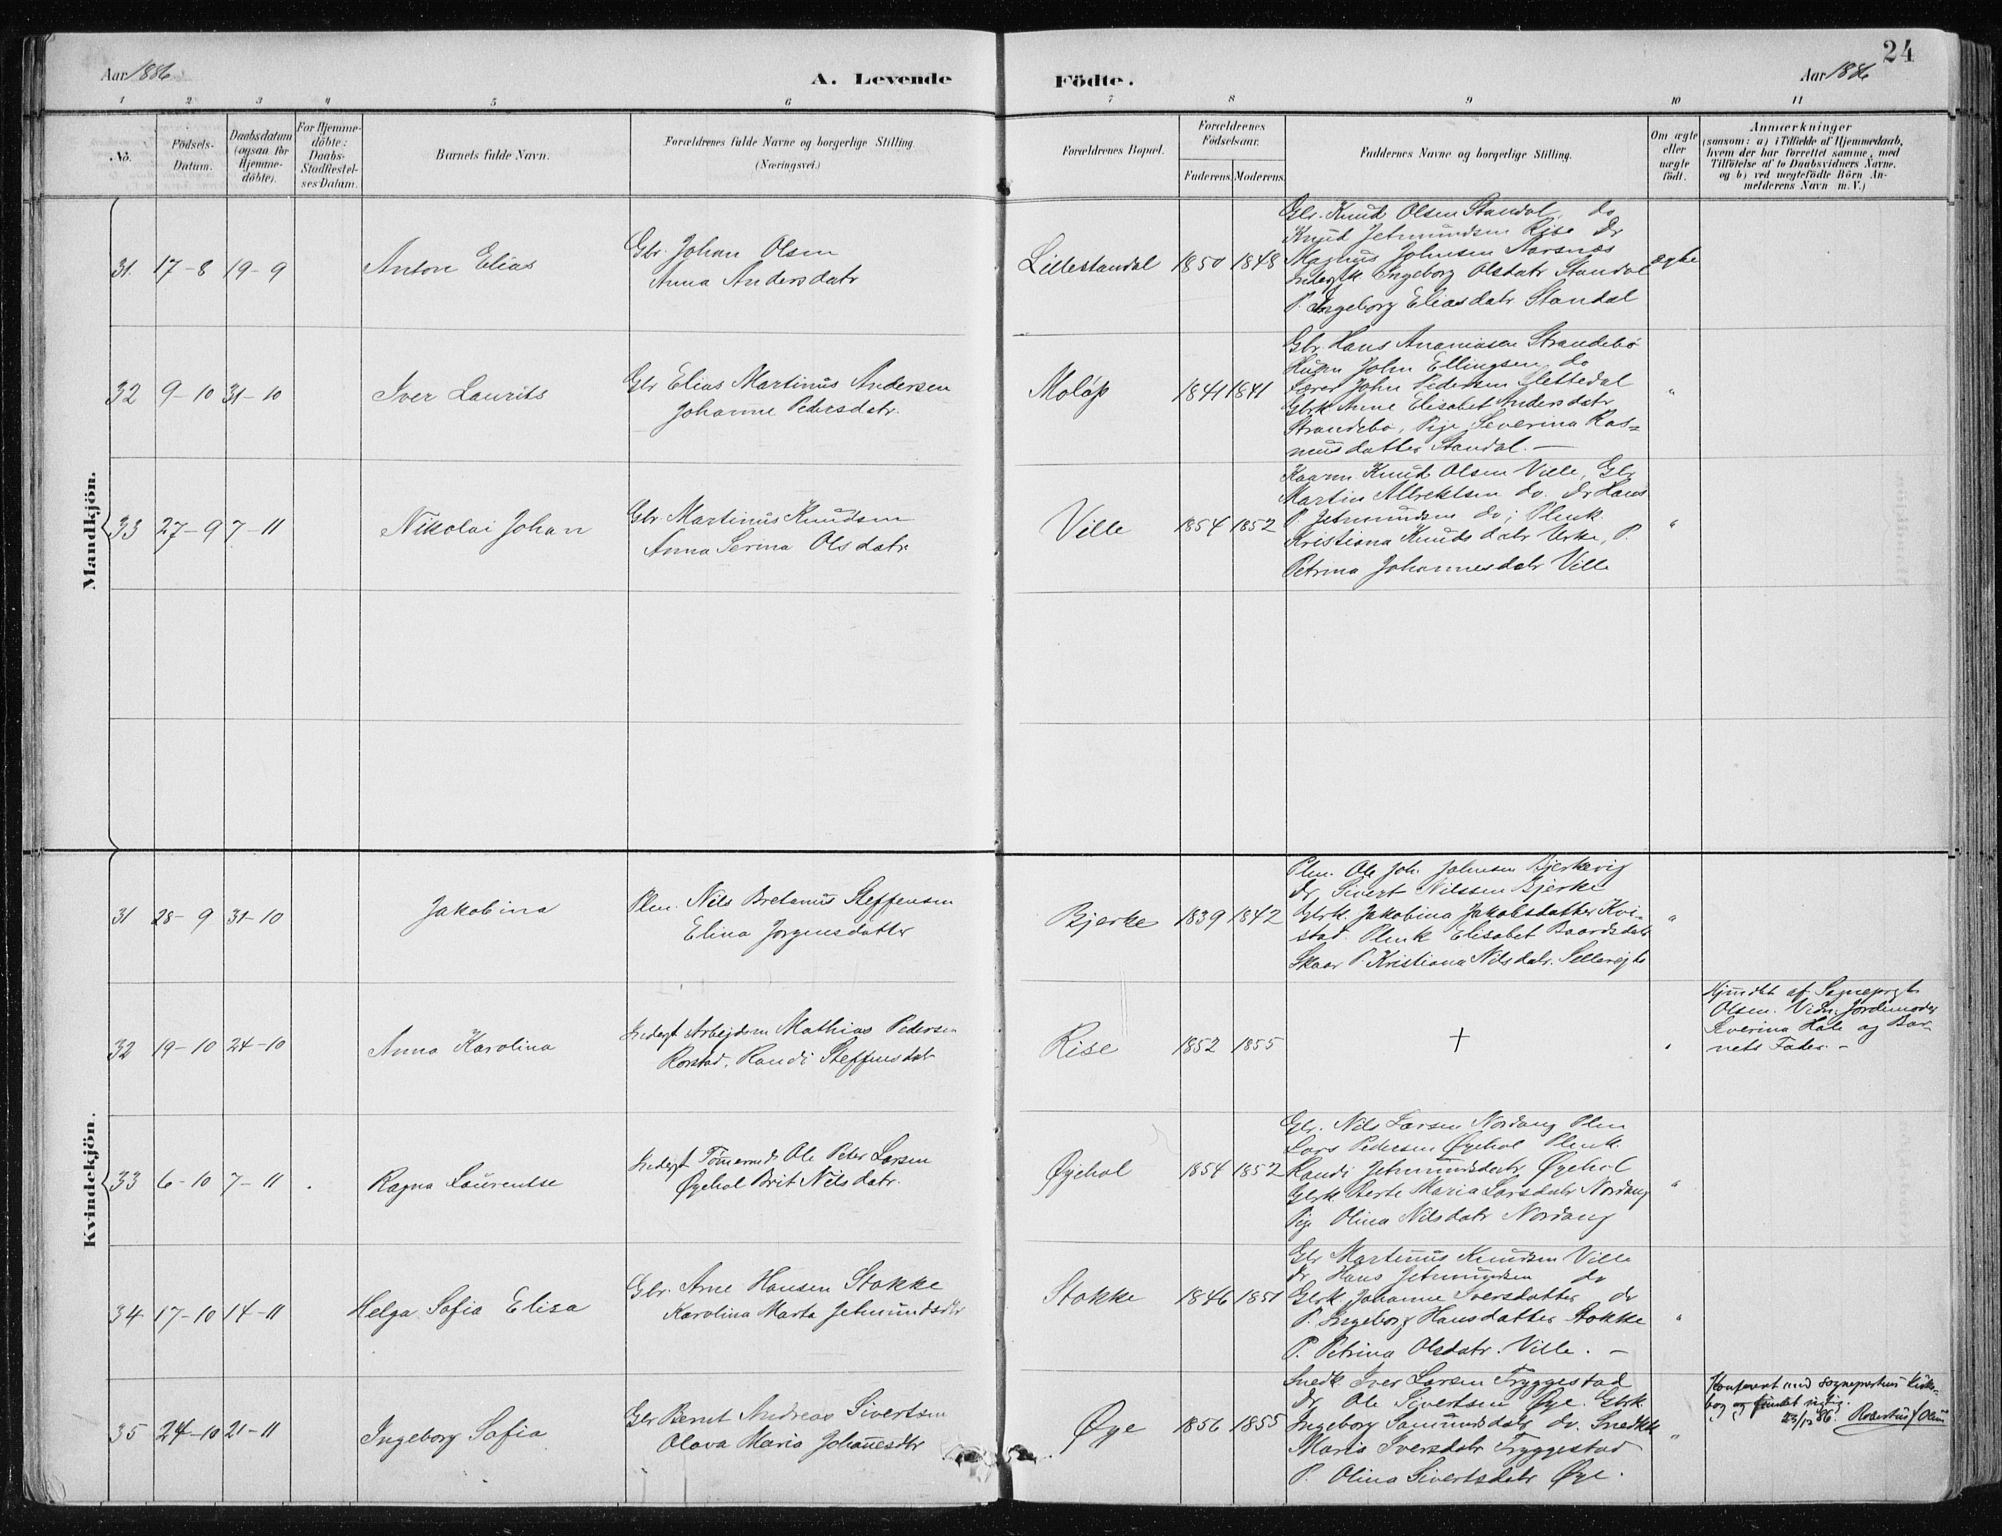 24
Aar 1886 A. Levende Födte. Aar 1886
1 2 3 4 5 6 7 8 9 10 11
No.
Födsels-Datum.
Daabsdatum (ogsaa for Hjemme-döbte).
For Hjemme-döbte: Daabs-Stadfestel-ses-Datum.
Barnets fulde Navn.
Forældrenes fulde Navne og borgerlige Stilling. (Næringsvei.)
Forældrenes Bopæl.
Forældrenes Födselsaar.
Faderens. Moderens.
Faddernes Navne og borgerlige Stilling.
Om ægte eller uægte födt.
Anmærkninger
(saasom: a) i Tilfælde af Hjemmedaab, hvem der har forrettet samme, med Tilföielse af to Daabsvidners Navne. og b) ved uægtefödte Börn An-melderens Navn m. V.)
Mandkjön.
31. 17-8 19-9 Anton Elias
Gbr. Johan Olsen
Anna Andersdatr
Lillestandal 1850 1848
Gbr. Knud Olsen Standal, do
Knud Jetmundsen Rise Dr
Magnus Johnsen Aarsnæs
Inderstk Ingeborg Olsdatr Standal
P. Ingeborg Eliasdatr Standal
ægte
32 9-10 31-10 Iver Laurits
Gbr Elias Martinus Andersen
Johanne Pedersdatr.
Moløp 1841 1841
Gbr. Hans Ananiasen Strandebø
Husm John Ellingsen do
Lærer John Pedersen Slettedal
Gbrk Anne Elisabet Andersdatr
Strandebø, Pige Severina Ras=
musdatter Standal. —
"
33 27-9 7-11 Nikolai Johan
Gbr. Martinus Knudsen
Anna Serina Olsdatr.
Ville 1854 1852
Kaarm Knud Olsen Ville, Gbr
Martin Albrektsen do. Dr Hans
P. Jetmundsen do; Plenk.
Kristiana Knudsdatr Urke, P.
Petrina Johannesdatr Ville
"
Kvindekjön.
31 28-9 31-10 Jakobina
Plm. Nils Bretanus Steffensen
Elina Jørgensdatter
Bjerke 1839 1842
Plm. Ole Joh. Johnsen Bjerkevig
Dr. Sivert Nilssen Bjerke
Gbrk. Jakobina Jakobsdatter Kvi-
stad. Plenk Elisabet Baardsdatr
Skaar P. Kristiana Nilsdatr.
"
32 19-10 24-10 Anna Karolina
Inderst Arbejdsm Mathias Pedersen
Rorstad, Randi Steffensdatr
Rise 1852 1855
+
"
Hjmdbt af Sogneprest
Olsen. Vidn. Jordemoder
Severina Hole og Bar-
nets Fader. -
33 6-10 7-11 Ragna Laurentse
Inderst Tømermd Ole Peter Larsen
Øyehol Brit Nilsdatr.
Øyehol 1854 1852
Gbr. Nils Larsen Nordang Plm
Lars Pedersen Øyehol Plenk.
Randi Jetmundsdatr, Øyehol
Gbrk Berte Maria Larsdatr Nordang
Pige Olina Nilsdatr Nordang
"
34 17-10 14-11 Helga Sofia Elisa
Gbr. Arne Hansen Stokke
Karolina Marta Jetmundsdtr
Stokke 1846 1851
Gbr Martinus Knudsen Ville
Dr. Hans Jetmundsen do
Gbrk. Johanne Iversdatter do
P. Ingeborg Hansdatter Stokke
P. Petrina Olsdatr. Ville. —
"
35 24-10 21-11 Ingeborg Sofia
Gbr Bernt Andreas Sivertsen
Olava Maria Johannesdtr
Øye 1856 1855
Snedk Iver Larsen Tryggestad
Dr. Ole Sivertsen Øye. Gbrk
Ingeborg Samundsdatr do. Snedkk
Maria Iversdatr Tryggestad
P. Olina Sivertsdatr Øye.
"
Konfereret med sogneprestens Kirke-
bog og fundet rigtig.